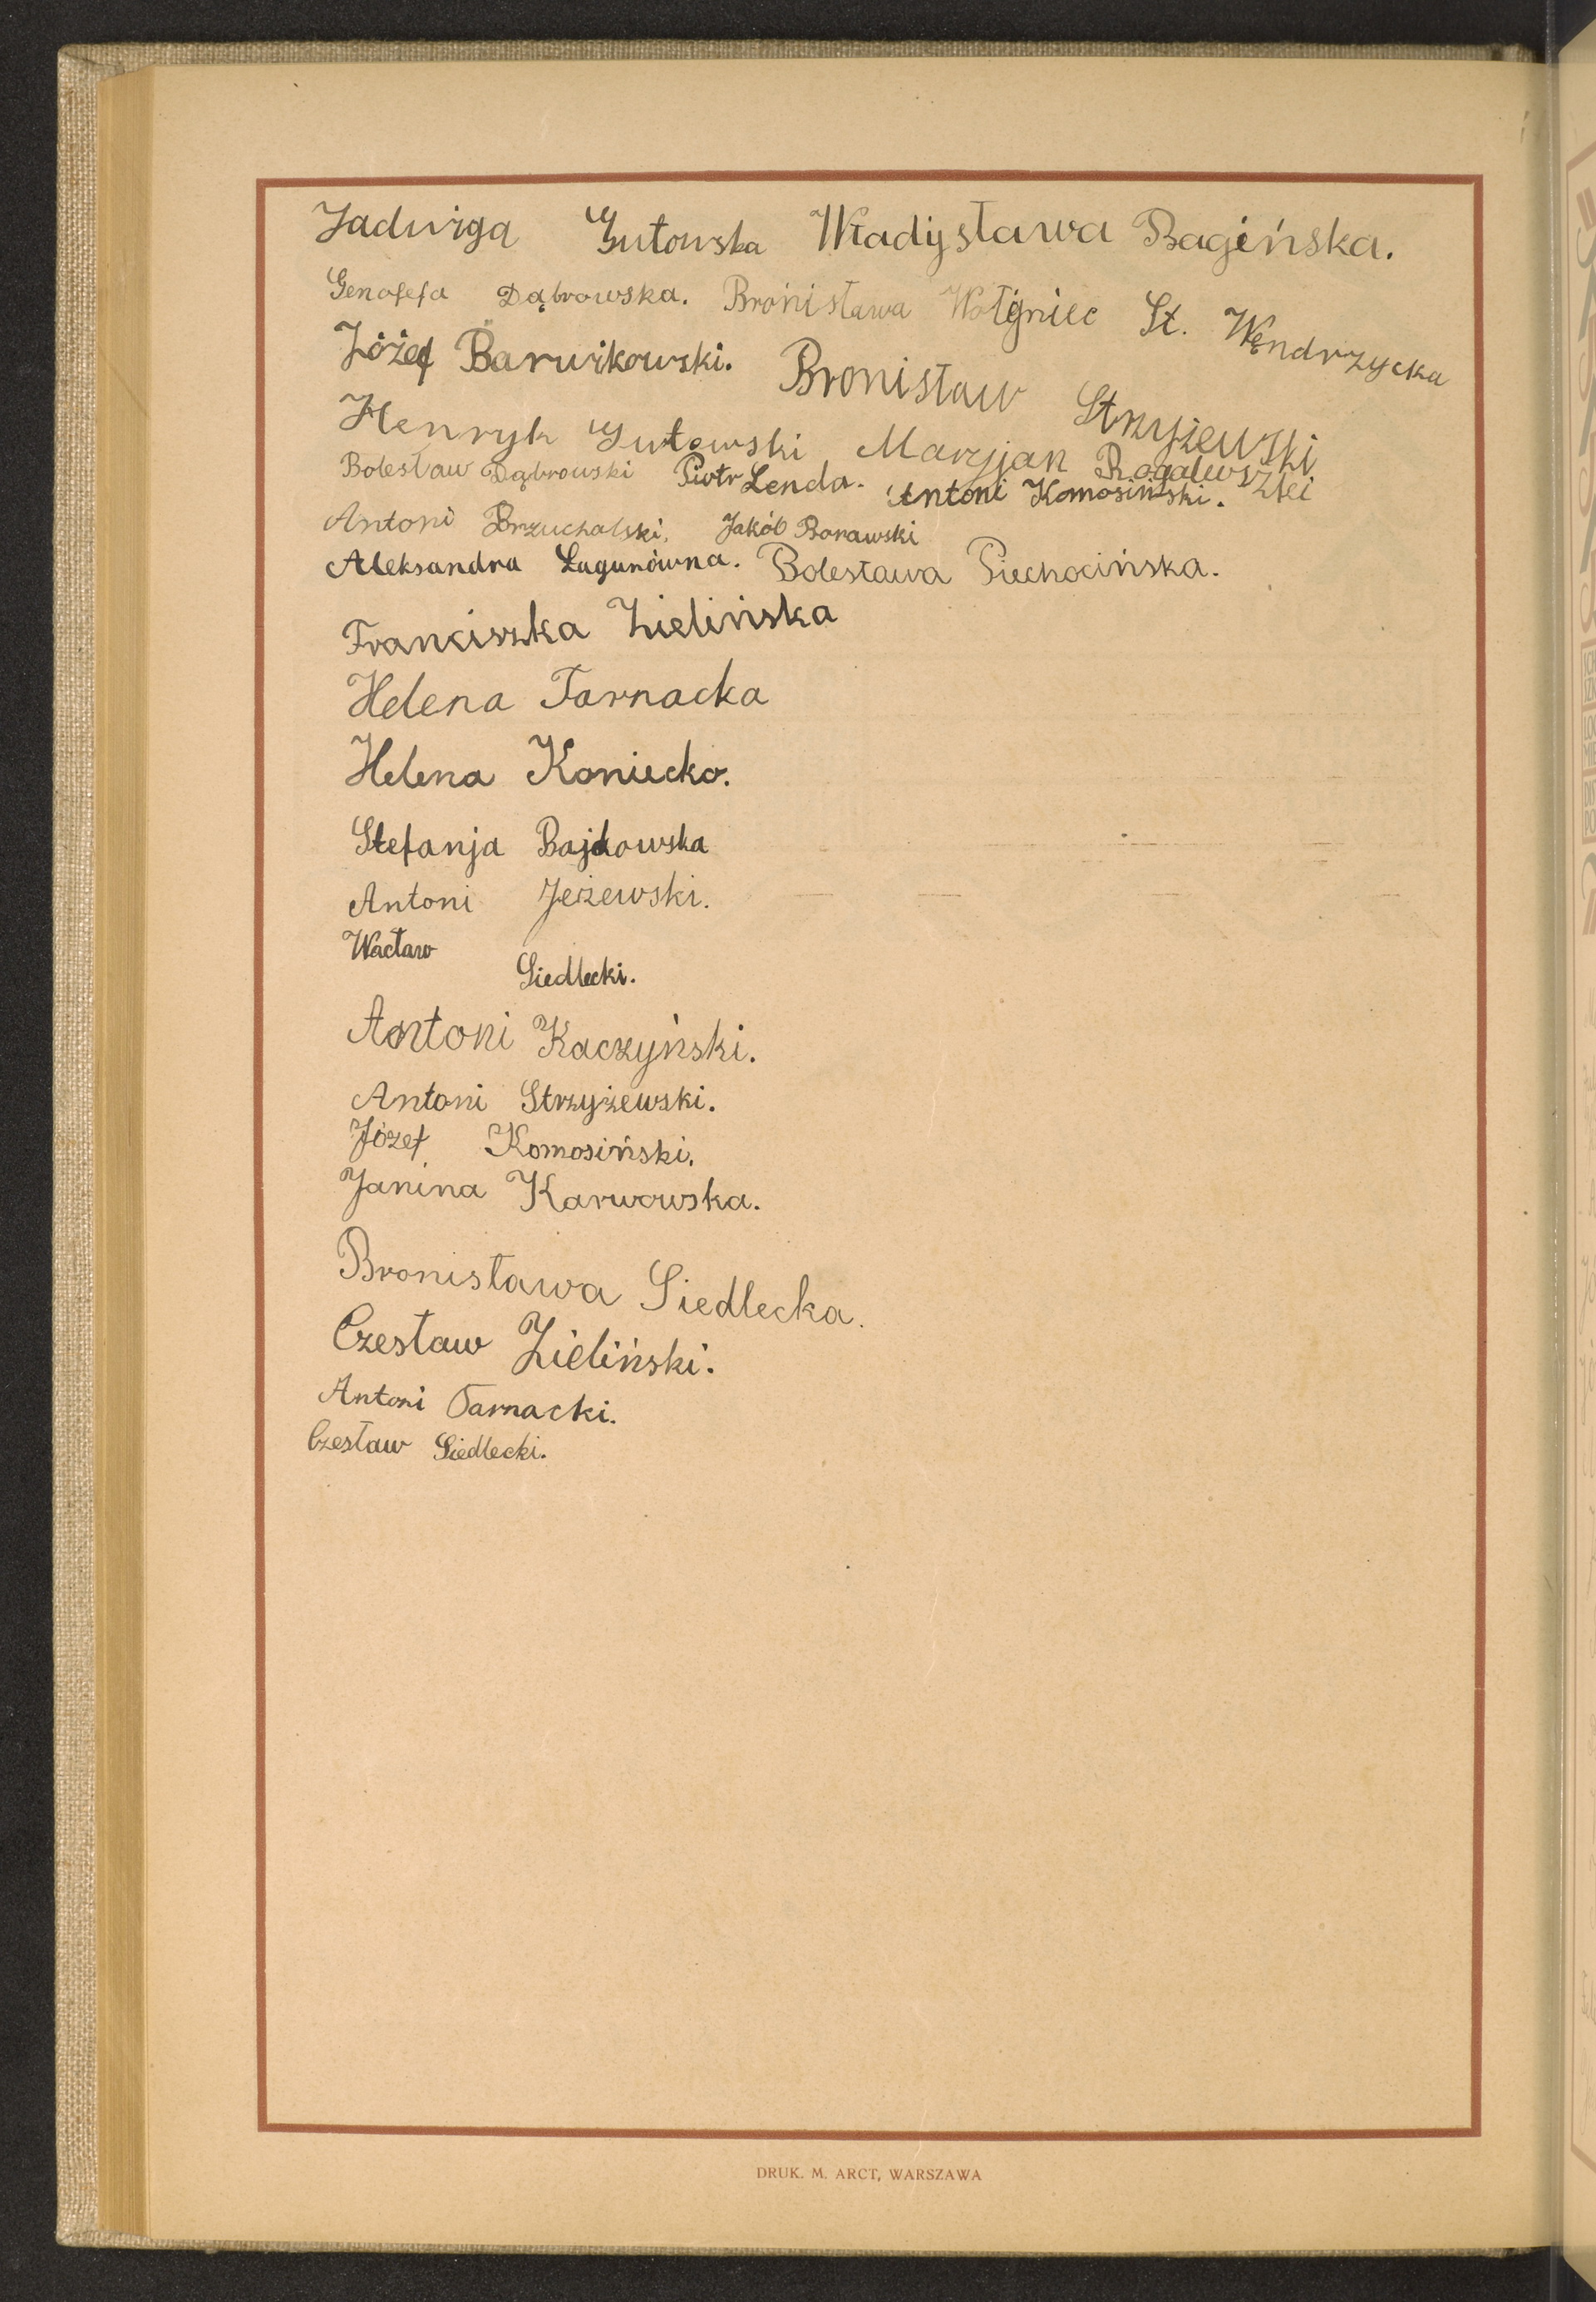 Jadwiga Gutowska Władysława Bagińska.
Genofefa Dąbrowska. Bronisława Wołyniec St. Wendrzycka
Józef Barwikowski. Bronisław Strzyżewski
Henryk Gutowski Maryjan Rogalewszki
Bolesław Dąbrowski Piotr Lenda. Antoni Komosiński.
Antoni Brzuchalski. Jakób Borawski
Aleksandra Łagunówna. Bolesława Piechocińska.
Franciszka Zielińska
Helena Tarnacka
Helena Koniecko.
Stefanja Bajkowska
Antoni Jeżewski.
Wacław Siedlecki.
Antoni Kaczyński.
Antoni Strzyżewski.
Józef Komosiński.
Janina Karwowska.
Bronisława Siedlecka.
Czesław Zieliński.
Antoni Tarnacki.
Czesław Siedlecki.
DRUK. M. ARCT, WARSZAWA